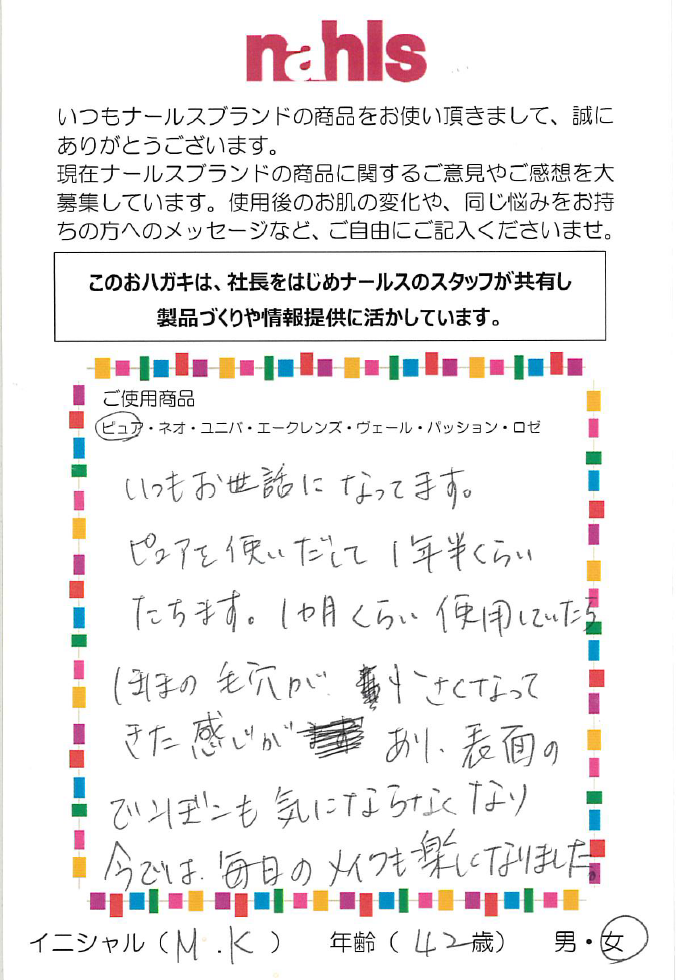 nahls
いつもナールスブランドの商品をお使い頂きまして、誠に
ありがとうございます。
現在ナールスブランドの商品に関するご意見やご感想を大
募集しています。使用後のお肌の変化や、同じ悩みをお持
ちの方へのメッセージなど、ご自由にご記入くださいませ。
このおハガキは、社長をはじめナールスのスタッフが共有し
製品づくりや情報提供に活かしています。
ご使用商品
ピュア・ネオ・ユニバ・エークレンズ・ヴェール・パッション・ロゼ
いつもお世話になってます。
ピュアを使いだして1年半くらい
たちます。1カ月くらい使用していたら
ほほの毛穴が小さくなって
きた感じがあり、表面の
でこぼこも気にならなくなり
今では、毎日のメイクも楽しくなりました。
イニシャル（M.K） 年齢（42歳） 男・女